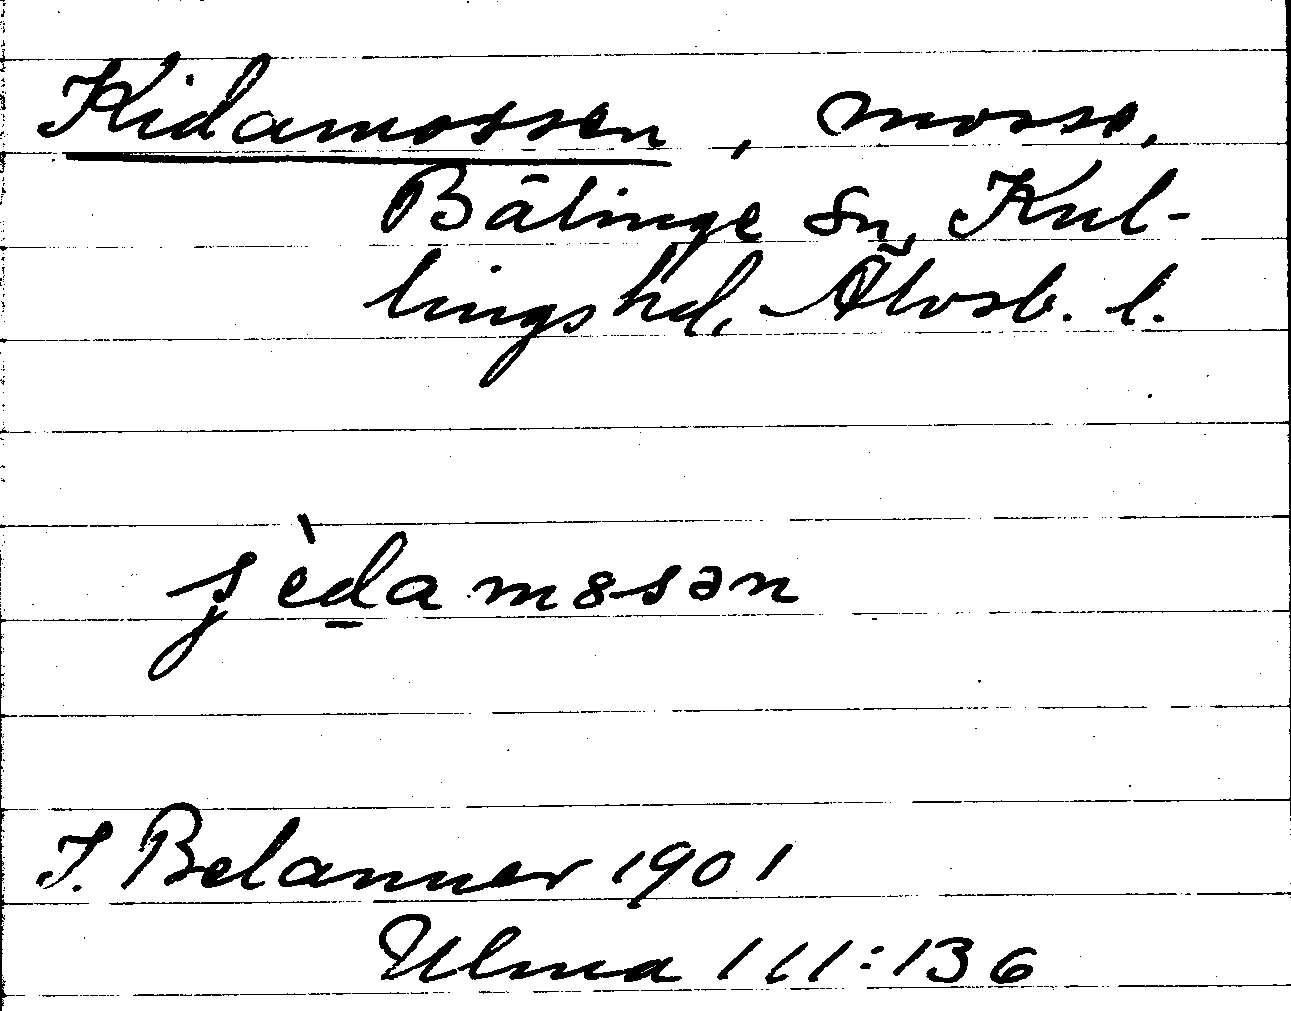 Kidamossen, mosse,
Bälinge sn, Kul-
lingshd, Älvsb. l.
ʃèdamɞsən
J. Belanner 1901
Ulma 111:136